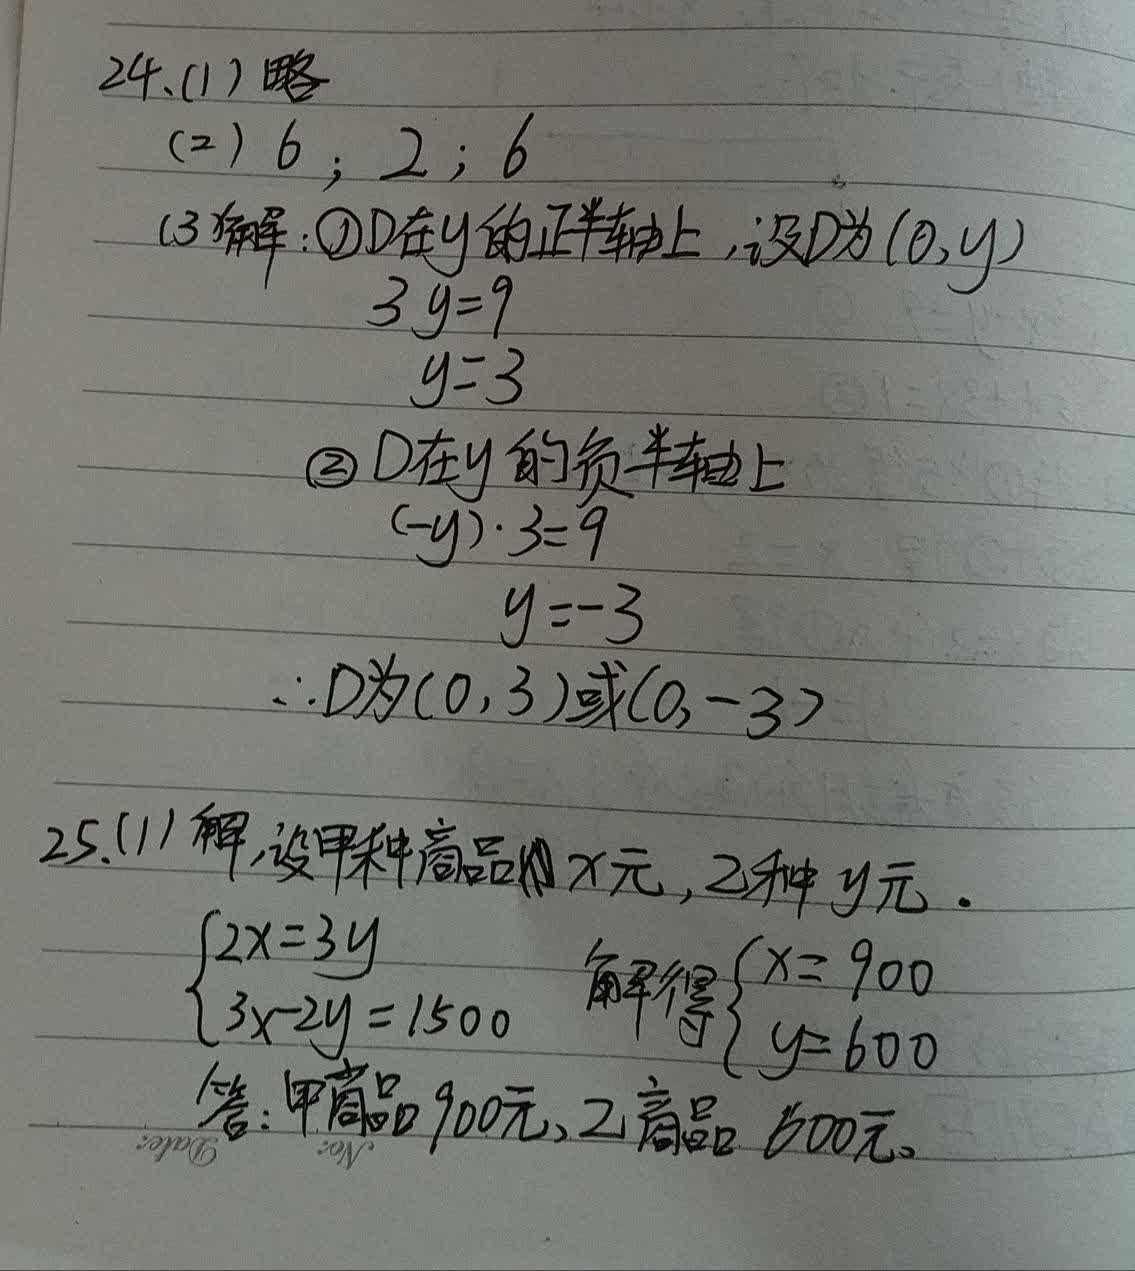 24.(1)略
(2) 6 ; 2 ; 6
(3)解:①D在y的正半轴上,设D为(0,y)
3y=9
y=3
②D在y的负半轴上
(-y)·3=9
y=-3
∴D为(0,3)或(0,-3)
25.(1)解,设甲种商品x元,乙种y元.
{2x=3y
3x-2y=1500
解得{x=900
y=600
答:甲商品900元、乙商品600元。
No:
Date: